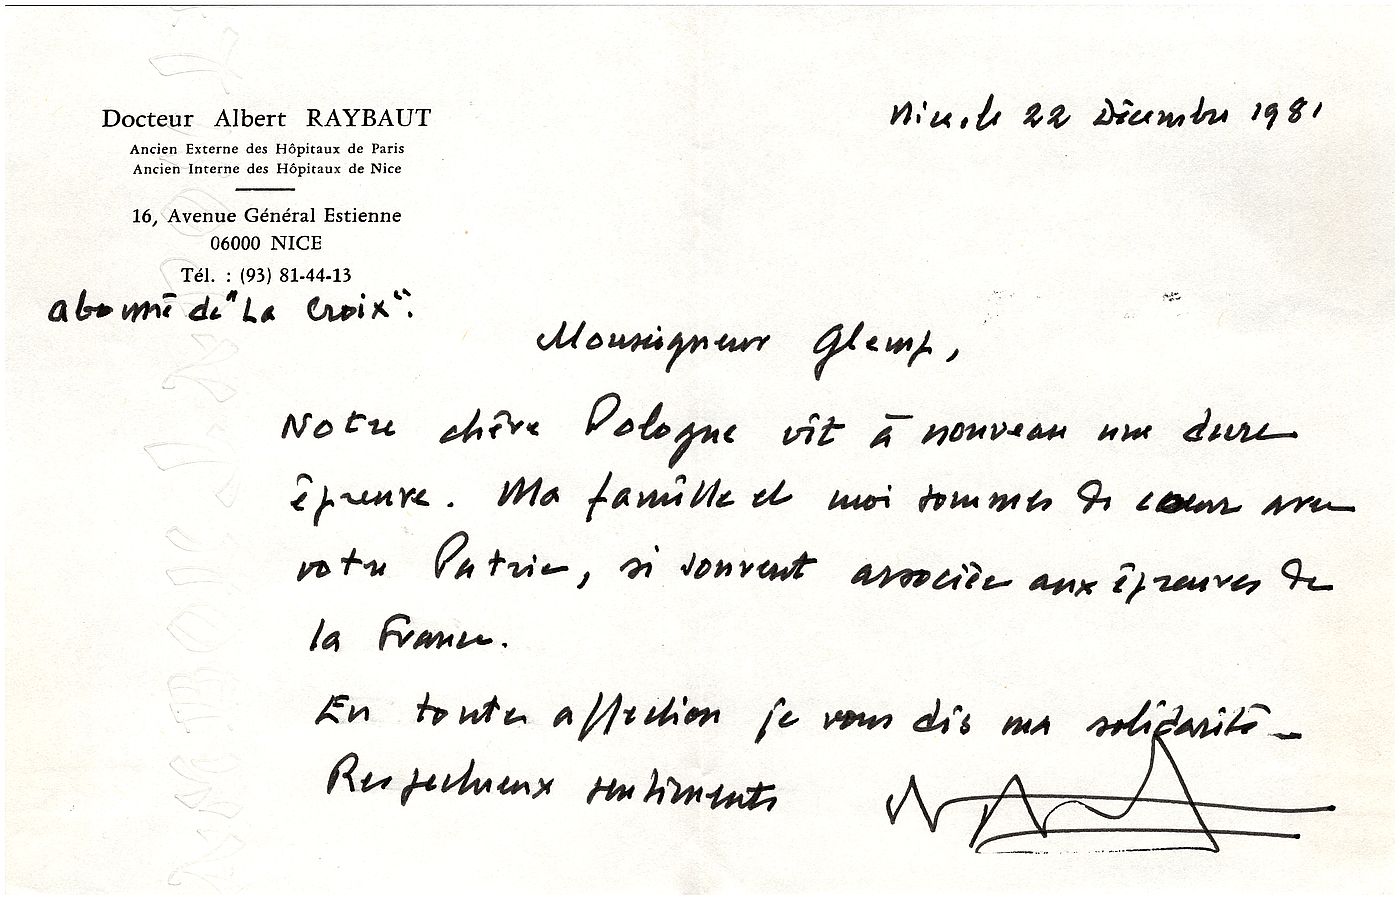 Docteur Albert RAYBAUT
Ancien Externe des Hôpitaux de Paris
Ancien Interne des Hôpitaux de Nice
16, Avenue Général Estienne
06000 NICE
Tél. : (93) 81-44-13
abonné de "La Croix".
Nice, le 22 Décembre 1981
Monseigneur Glemp,
Notre chère Pologne vit à nouveau une dure
épreuve. Ma famille et moi sommes de coeur avec
votre Patrie, si souvent associée aux épreuves de
la France.
En toute affection je vous dis ma solidarité -
Respectueux sentiments